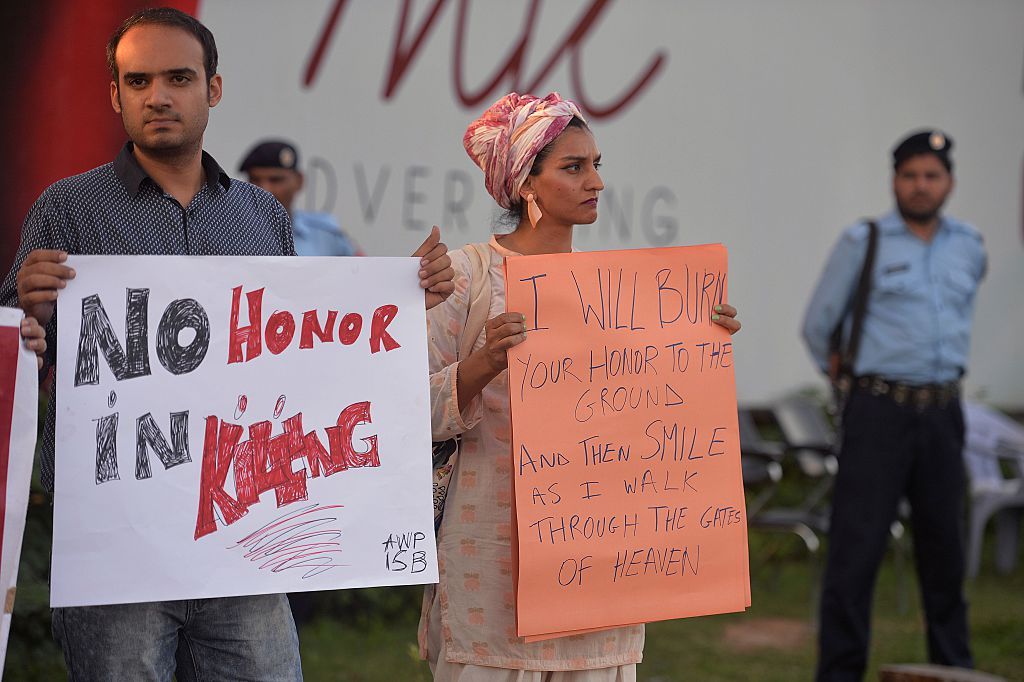 ADVER NG
NO HONOR
iN KiLLiNG
AWP
ISB
I WILL BURN
YOUR HONOR TO THE
GROUND
AND THEN SMILE
AS I WALK
THROUGH THE GATES
OF HEAVEN